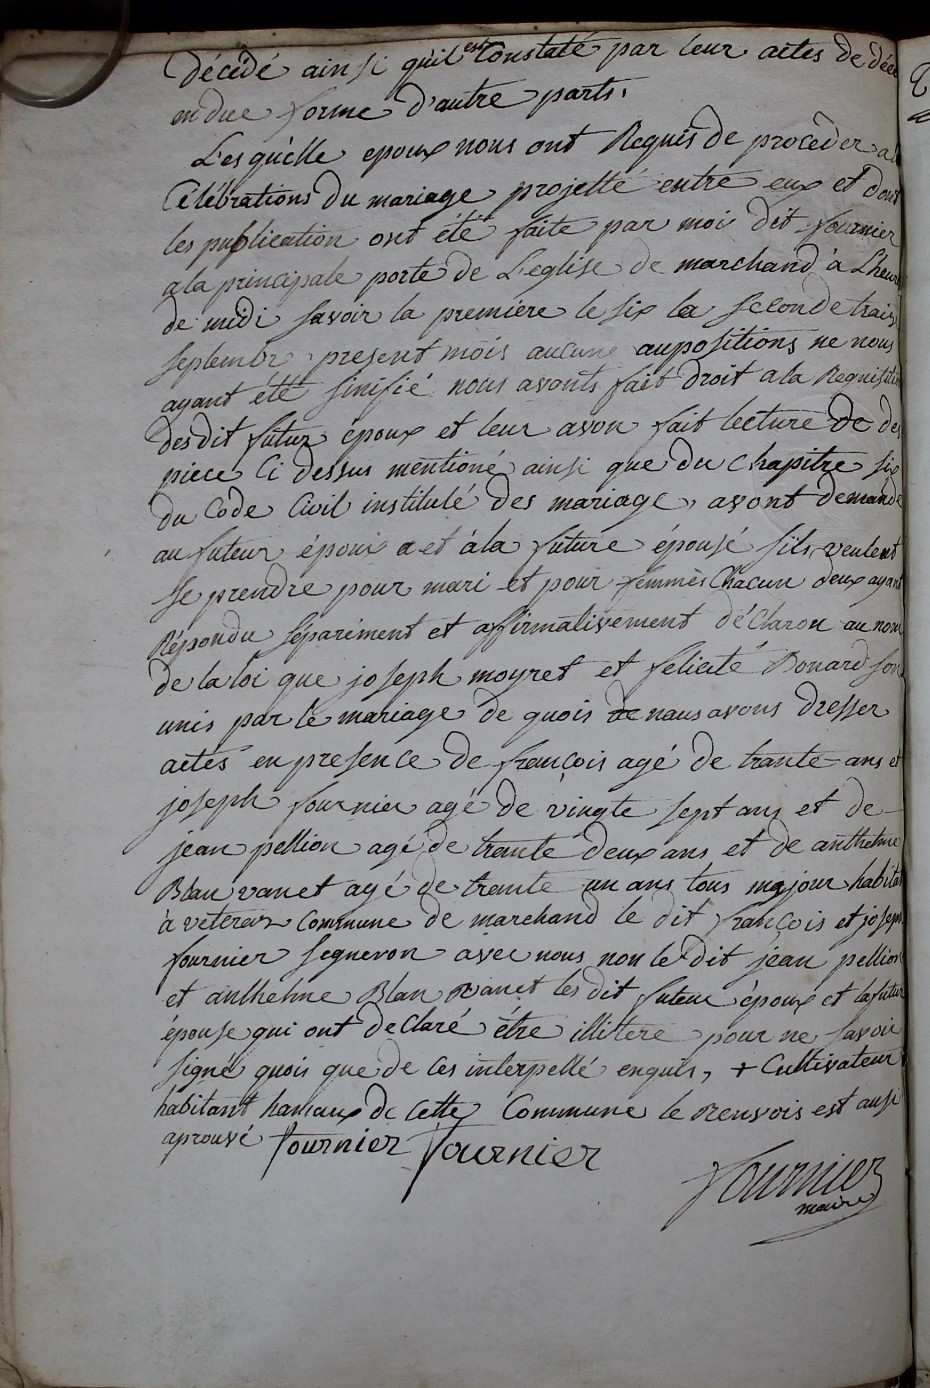 décédé ainsi quil est Constaté par leur actes de décè
en due forme d'autre parts.
Lesquelle epoux nous ont Requis de procéder a la
Célébrations du mariage projetté entre eux et dont
les publication ont été faite par moi dit fournier
a la principale porte de L'eglise de marchand à Lheure
de midi savoir la premiere le six la seconde traise
septembre present mois aucune aupositions ne nous
ayant été sinifié nous avonts fait droit a la Requisition
desdit futur époux et leur avon fait lecture de des
piece Ci dessus mentioné ainsi que du Chapitre six
du Code Civil institulé des mariage, avont demandé
au futeur époux et à la future épousé sils veulent
se prendre pour mari et pour femmes Chacun deux ayant
Répondu séparément et affirmativement déclaron au nom
de la loi que joseph moyret et felicité Bonard son
unis par le mariage de quois de nous avons dresser
actes en presence de françois agé de trante ans et
joseph fournier agé de vingte sept ans et de
jean pellion agé de trante deux ans et de anthelme
Blan vanet agé de trente un ans tous majour habitan
à veterez Commune de marchand le dit françois et joseph
fournier segneron avec nous non le dit jean pellion
et anthelme Blan vanet les dit futeur époux et la futur
épouse qui ont declaré être illitere pour ne savoir
signé quois que de ces interpellé enquis, + Cultivateur
habitant hamaux de Cette Commune le Renvois est ausi
aprouvé fournier fournier
fournier
maire